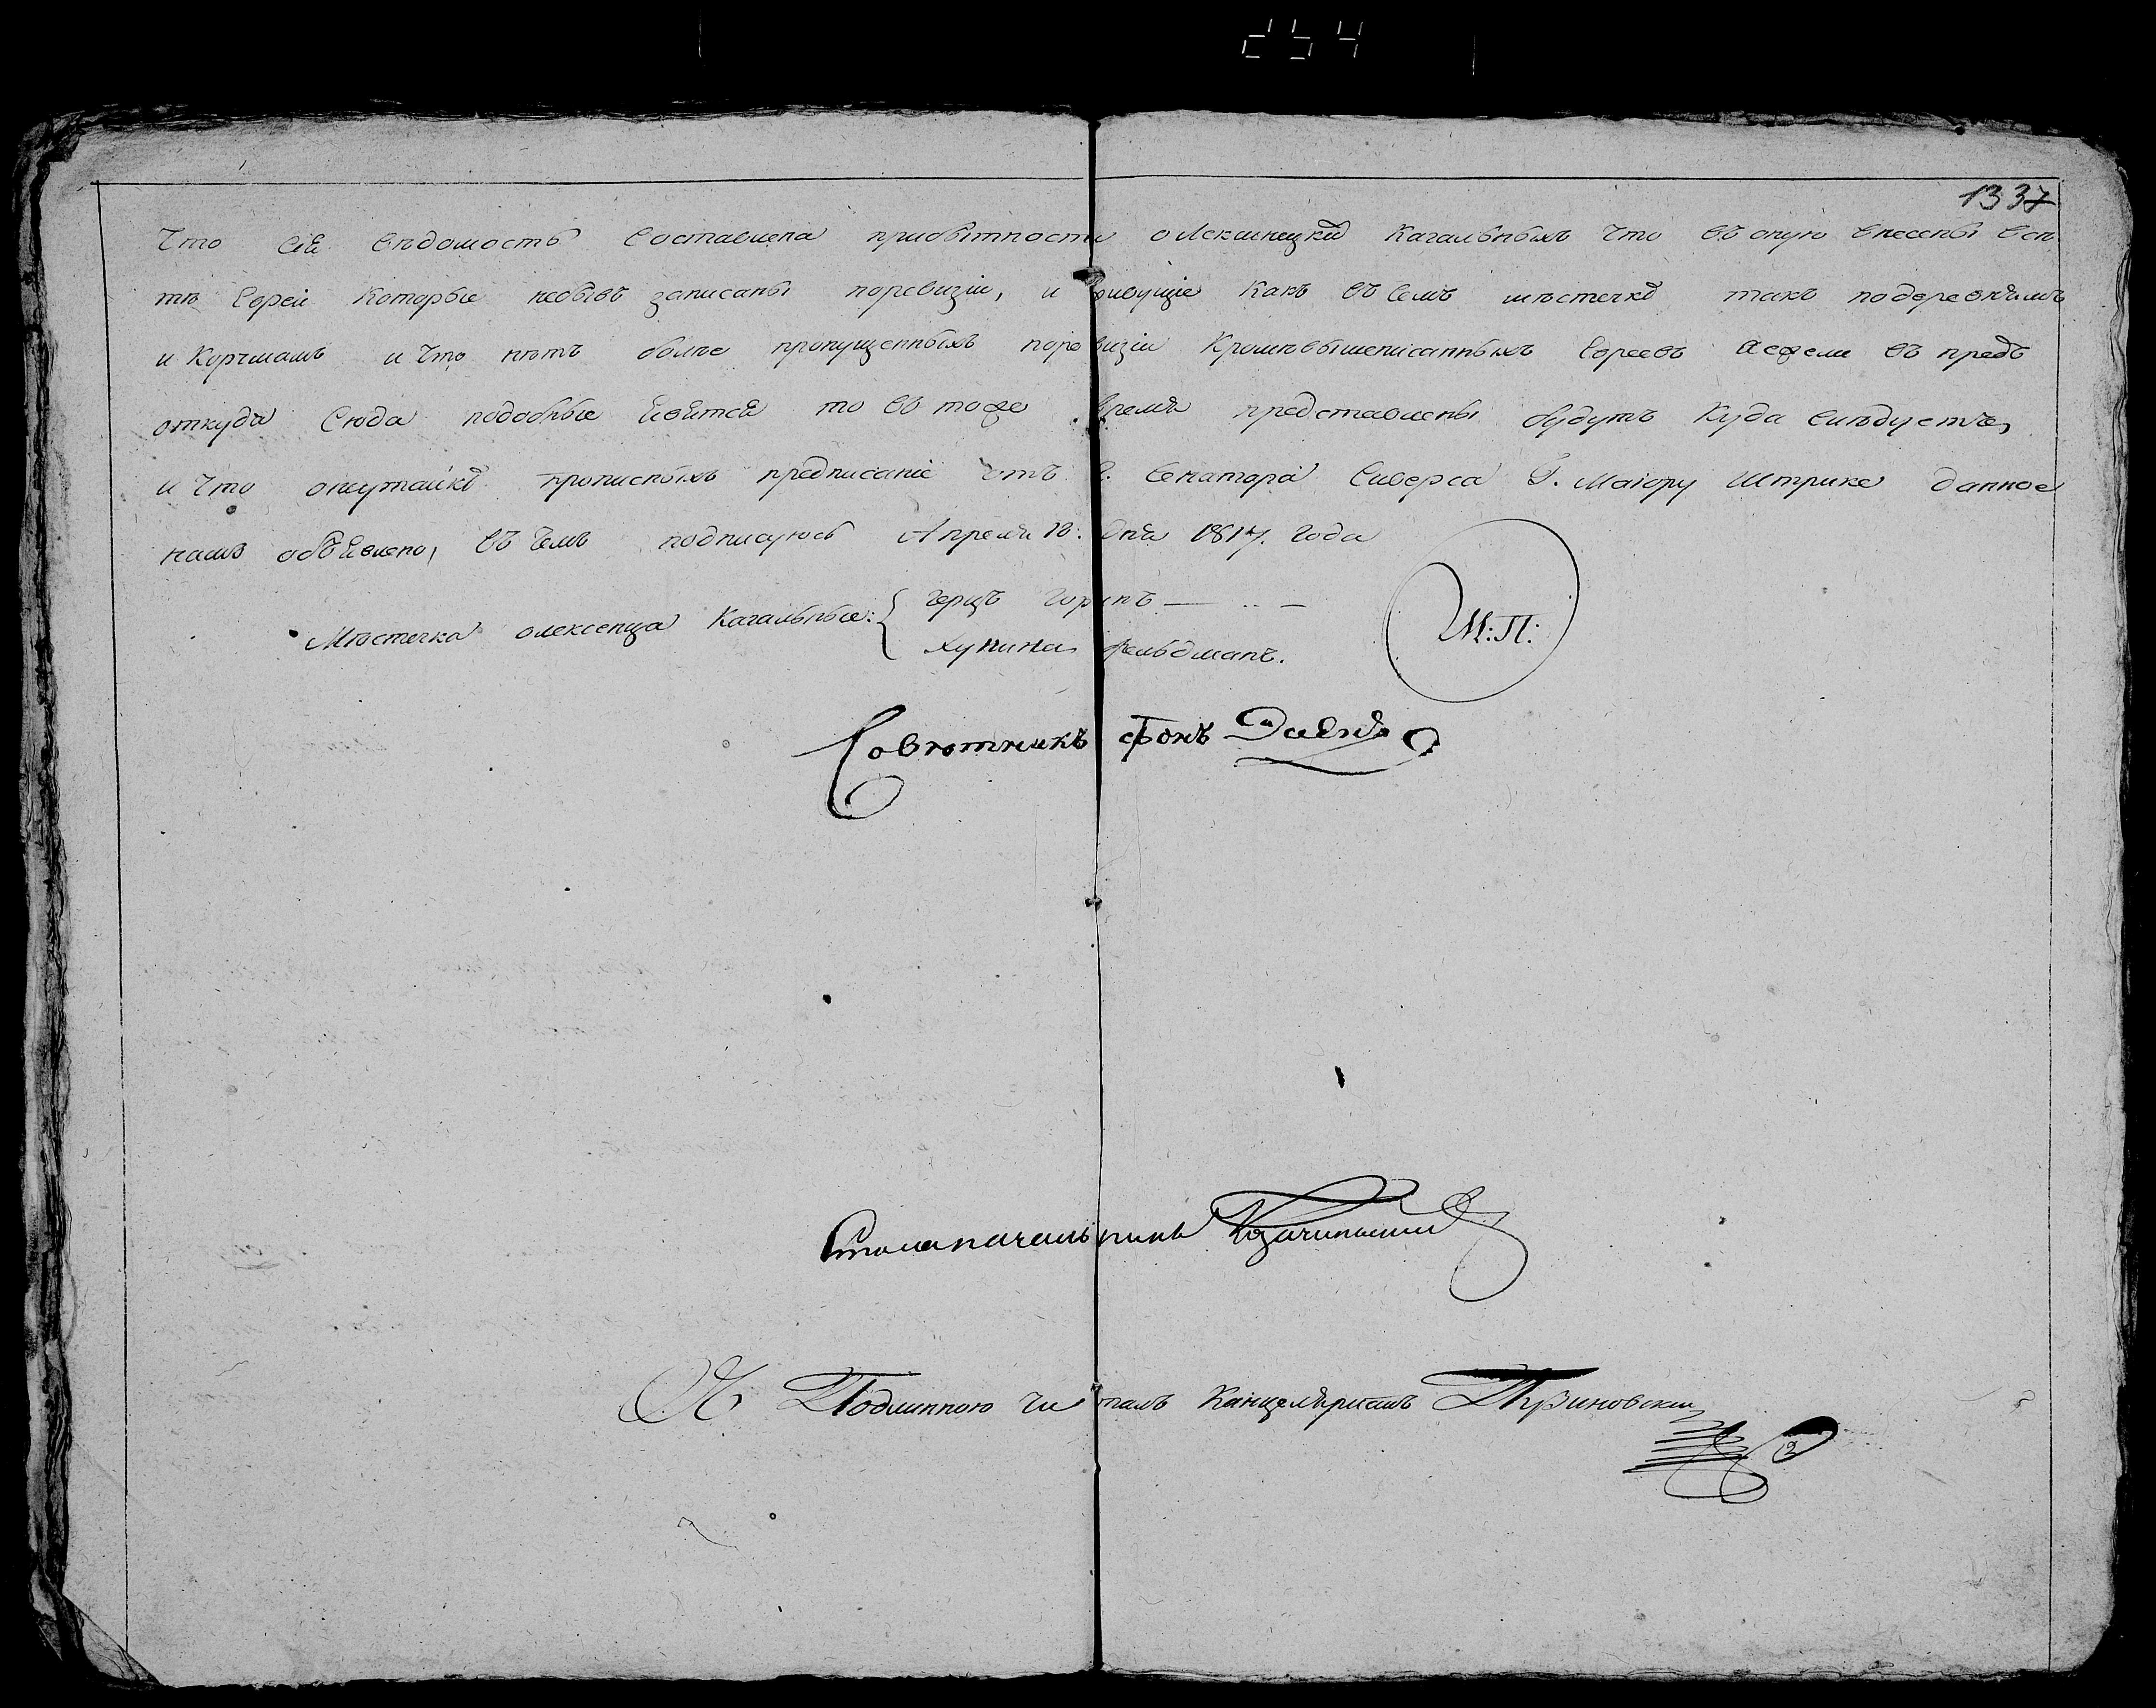 254
1337
Что сія ведомость составлена прибытности олексинецкихъ кагальныхъ что въ оную внесены все
тѣ Евреи которые небывъ записаны поревизіи, и живущіе какъ въ семъ мѣстечкѣ такъ подеревнямъ
и корчмамъ и что нѣтъ болѣе пропущенныхъ поревизіи кромѣвышеписанныхъ Евреевъ аежели въ предъ
откуда сюда подобные явятся то въ тоже время представлены будутъ куда слѣдуетъ,
и что прописныхъ предписаніе отъ Г. Сенатора Сиверса Г. Маіору Штрике данное
намъ объявлено, въ чемъ подписуюсь Апреля 10: дня 1817. года
Мѣстечка олексенца Кагальные: { герцъ горинъ — .. —
хунина фельдманъ.
М:П:
Совѣтникъ фонъ
Столоначальникъ
Съ Подлиннымъ читалъ Канцеляристъ